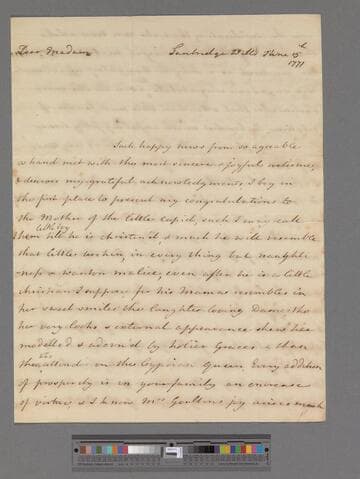 Dear Madam Tunbridge Wells June 15th
1771
Such happy news from so agreable
a hand met with the most sincere & joyful welcome,
& deserves my grateful acknowledgments, I beg in
the first place to present my congratulations to
the Mother of the little Cupid, such I may call
him till he is christen'd, & much he will resemble
that little urchin in every thing but naughti
ness & wanton malice, even after he is a little
Christian I suppose for his Mama resembles in
her sweet smiles the laughter loving Dame, tho
her very looks & external appearance shew her
modelled & adorned by holier Graces than
those that attend on the Cyprian Queen. Every addition
of prosperity is in your family an encrease
of virtue & I know Mrs joy arises much